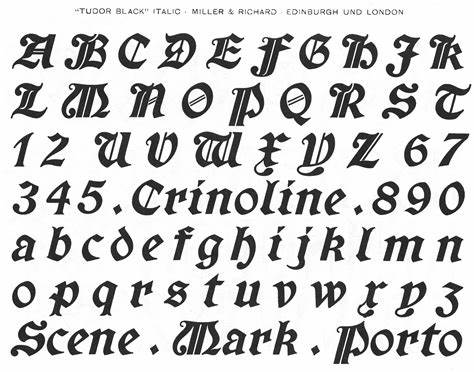 "TUDOR BLACK" ITALIC · MILLER & RICHARD · EDINBURGH UND LONDON
A B C D E F G H J K
L M N O P Q R S T
1 2 U V W X Y Z 6 7
3 4 5 . Crinoline . 8 9 0
a b c d e f g h i j k l m n
o p q r s t u v w x y z
Scene . Mark . Porto